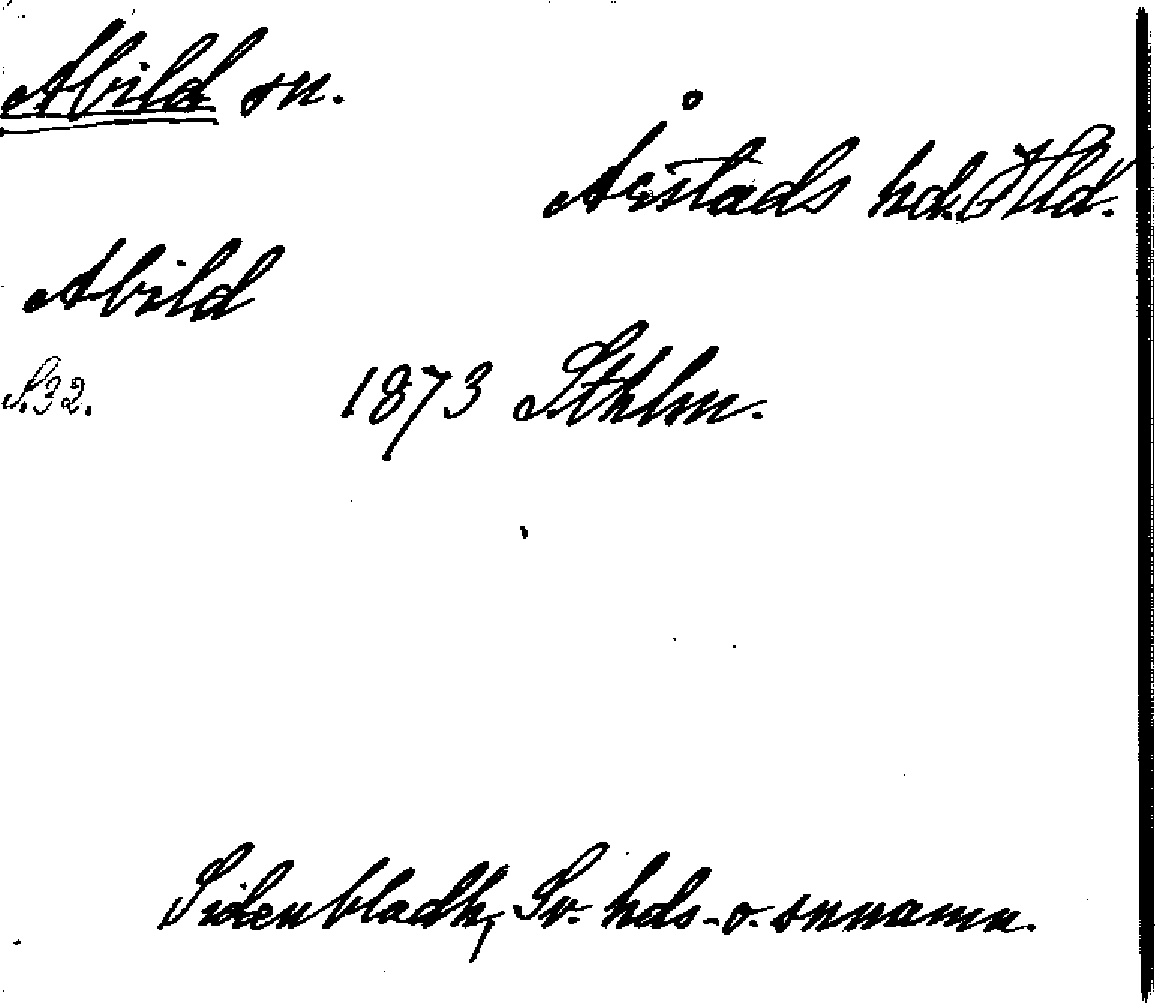 Abild sn.
Årstads hd. Hld.
Abild
S.32. 1873 Sthlm.
Sidenbladh, Sv. hds- o. snnamn.